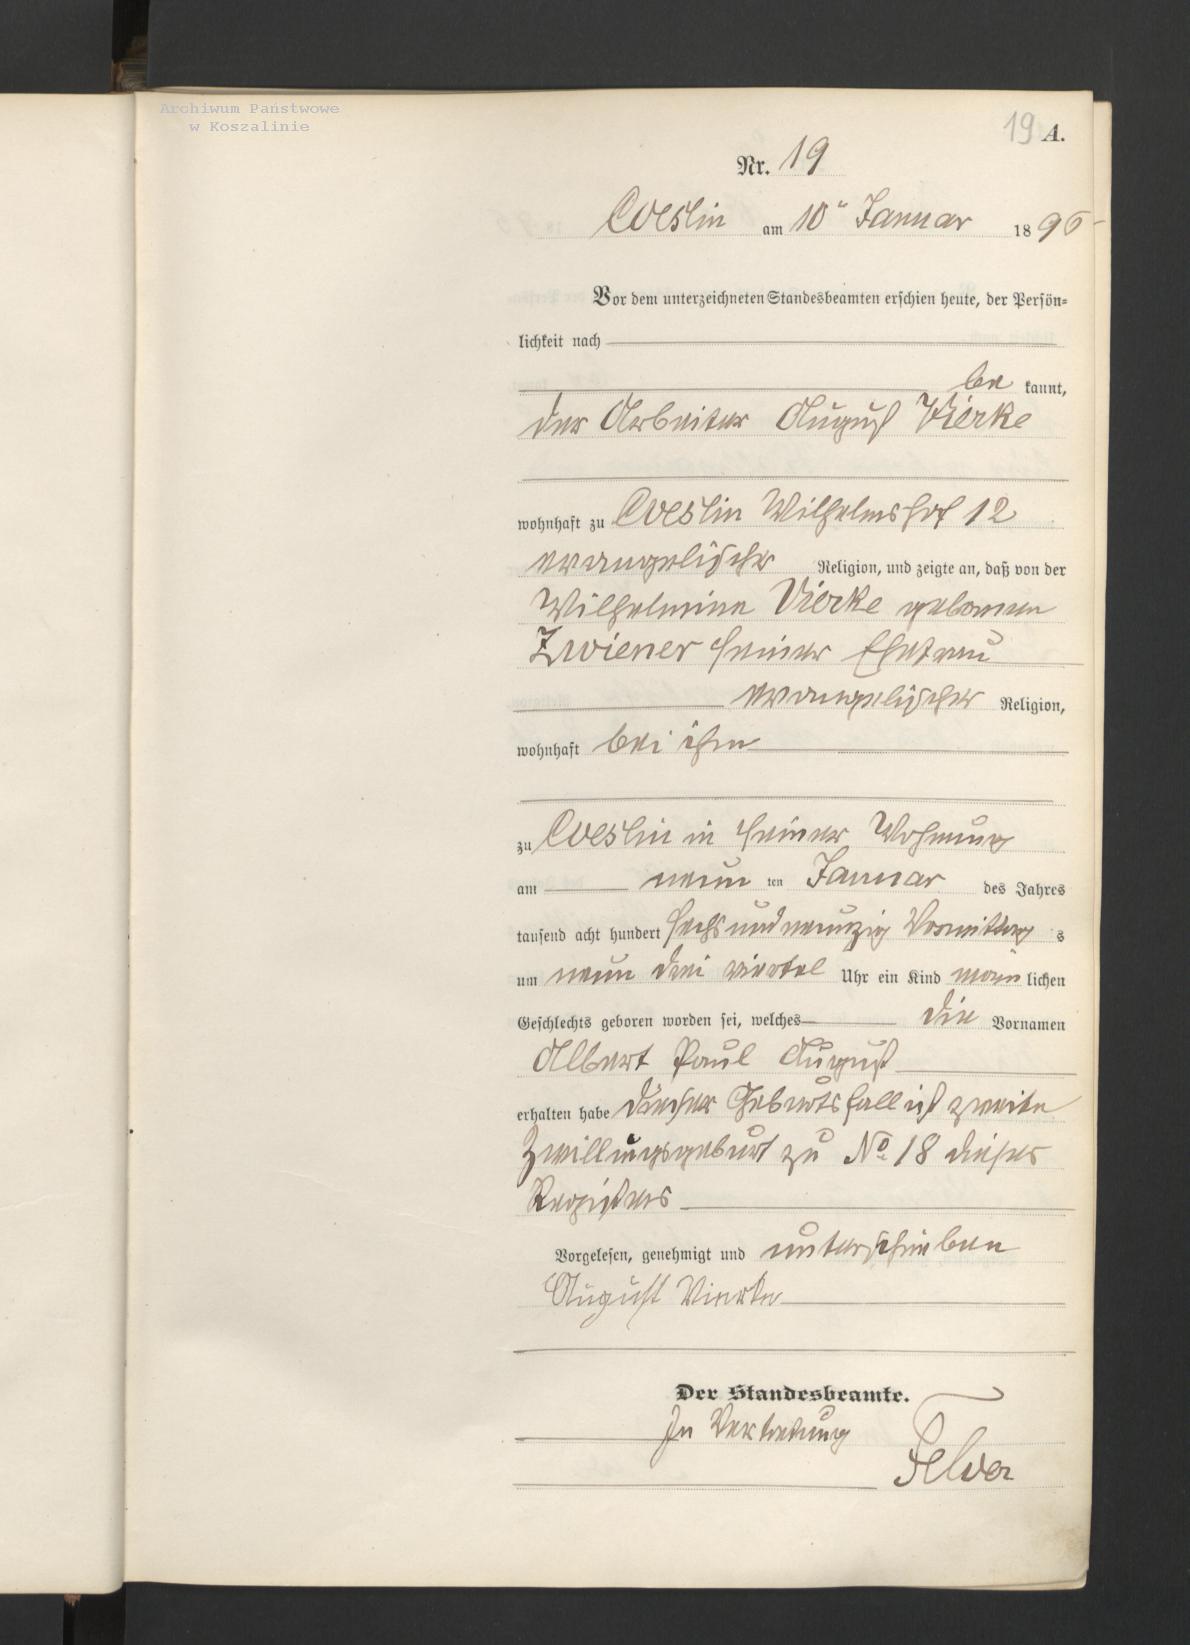 Archiwum Państwowe
w Koszalinie
19 A.
Nr. 19
Coeslin am 10n Januar 1896
Vor dem unterzeichneten Standesbeamten erschien heute, der Persön-
lichkeit nach
be kannt,
der Arbeiter August Vierke
wohnhaft zu Coeslin Wilhelmshof 12
evangelischer Religion, und zeigte an, daß von der
Wilhelmine Vierke geborenen
Zwiener seiner Ehefrau
evangelischer Religion,
wohnhaft bei ihm
zu Coeslin in seiner Wohnung
am neun ten Januar des Jahres
tausend acht hundert sechs und neunzig Vormittag s
um neun drei viertel Uhr ein Kind männ lichen
Geschlechts geboren worden sei, welches die Vornamen
Albert Paul August
erhalten habe dieser Geburtsfall ist zweite
Zwillingsgeburt zu No 18 dieses
Registers
Vorgelesen, genehmigt und unterschrieben
August Vierke
Der Standesbeamte.
In Vertretung